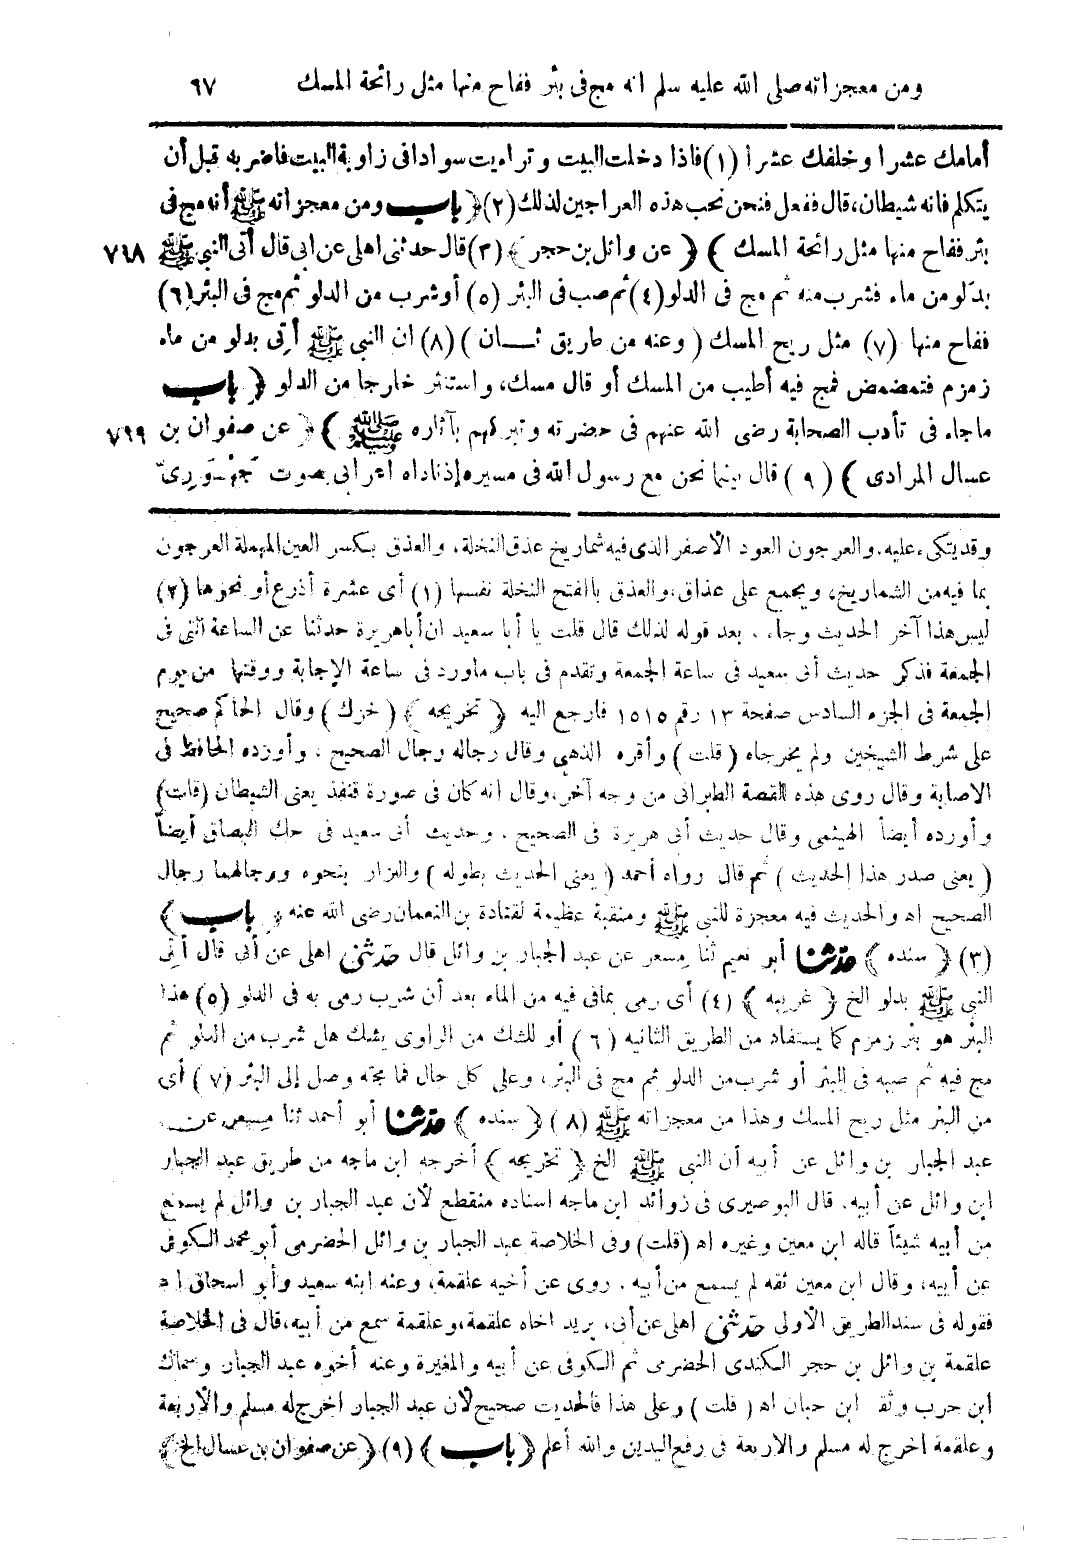 ومن معجزاته صلى الله عليه سلم انه مج فى بئر ففاح منها مثل رائحة المسك ٦٧
أمامك عشرا وخلفك عشرا (١) فاذا دخلت البيت وتراءيت سوادا فى زاوية البيت فاضربه قبل أن
يتكلم فانه شيطان، قال ففعل فنحن نحب هذه العراجين لذلك (٢) ﴿ باب ومن معجزاته ﷺ أنه مج فى
بئر ففاح منها مثل رائحة المسك ﴾ ﴿ عن وائل بن حجر ﴾ (٣) قال حدثنى اهلى عن ابى قال أتى النبى ﷺ ٧٦٨
بدلو من ماء فشرب منه ثم مج فى الدلو (٤) ثم صب فى البئر (٥) أو شرب من الدلو ثم مج فى البئر (٦)
ففاح منها (٧) مثل ريح المسك (وعنه من طريق ثــان) (٨) ان النبى ﷺ أتى بدلو من ماء
زمزم فتمضمض فمج فيه أطيب من المسك أو قال مسك، واستنثر خارجا من الدلو ﴿ باب
ماجاء فى تأدب الصحابة رضى الله عنهم فى حضرته وتبركهم بآثاره ﷺ ﴾ ﴿ عن صفوان بن ٧٦٩
عسال المرادى ﴾ (٩) قال بينما نحن مع رسول الله فى مسيره إذ ناداه اعرابى بصوت جَهْوَرِىّ
وقد يتكىء عليه. والعرجون العود الأصفر الذى فيه شماريخ عذق النخلة، والعذق بكسر العين المهملة العرجون
بما فيه من الشماريخ، ويجمع على عذاق، والعذق بالفتح النخلة نفسها (١) أى عشرة أذرع أو نحوها (٢)
ليس هذا آخر الحديث وجاء . بعد قوله لذلك قال قلت يا أبا سعيد ان أبا هريرة حدثنا عن الساعة التى فى
الجمعة فذكر حديث أبى سعيد فى ساعة الجمعة وتقدم فى باب ماورد فى ساعة الإجابة ووقتها من يوم
الجمعة فى الجزء السادس صفحة ١٣ رقم ١٥١٥ فارجع اليه ﴿ تخريجه ﴾ (خزك) وقال الحاكم صحيح
على شرط الشيخين ولم يخرجاه (قلت) وأقره الذهبى وقال رجاله رجال الصحيح . وأورده الحافظ فى
الاصابة وقال روى هذه القصة الطبرانى من وجه آخر، وقال انه كان فى صورة قنفذ يعنى الشيطان (قلت)
وأورده أيضاً الهيثمى وقال حديث أبى هريرة فى الصحيح . وحديث أبى سعيد فى حك البصاق أيضاً
(يعنى صدر هذا الحديث) ثم قال رواه أحمد (يعنى الحديث بطوله) والبزار بنحوه ورجالهما رجال
الصحيح اه والحديث فيه معجزة للنبى ﷺ ومنقبة عظيمة لقتادة بن النعمان رضى الله عنه ﴿ باب ﴾
(٣) ﴿ سنده ﴾ حدثنا أبو نعيم ثنا مسعر عن عبد الجبار بن وائل قال حدثنى اهلى عن أبى قال أتى
النبى ﷺ بدلو الخ ﴿ غريبه ﴾ (٤) أى رمى بمافى فيه من الماء بعد أن شرب رمى به فى الدلو (٥) هذا
البئر هو بئر زمزم كما يستفاد من الطريق الثانيه (٦) أو للشك من الراوى يشك هل شرب من الدلو ثم
مج فيه ثم صبه فى البئر أو شرب من الدلو ثم مج فى البئر، وعلى كل حال فما مجه وصل إلى البئر (٧) أى
من البئر مثل ريح المسك وهذا من معجزاته ﷺ (٨) ﴿ سنده ﴾ حدثنا أبو أحمد ثنا مسعر عن
عبد الجبار بن وائل عن أبيه أن النبى ﷺ الخ ﴿ تخريجه ﴾ أخرجه ابن ماجه من طريق عبد الجبار
ابن وائل عن أبيه. قال البوصيرى فى زوائد ابن ماجه اسناده منقطع لأن عبد الجبار بن وائل لم يسمع
من أبيه شيئاً قاله ابن معين وغيره اه (قلت) وفى الخلاصة عبد الجبار بن وائل الحضرمى أبو محمد الكوفى
عن أبيه، وقال ابن معين ثقه لم يسمع من أبيه. روى عن أخيه علقمة، وعنه ابنه سعيد وأبو اسحاق اه
فقوله فى سند الطريق الأولى حدثنى اهلى عن أبى، يريد اخاه علقمة، وعلقمة سمع من أبيه، قال فى الخلاصة
علقمة بن وائل بن حجر الكندى الحضرمى ثم الكوفى عن أبيه والمغيرة وعنه أخوه عبد الجبار وسماك
ابن حرب وثقه ابن حبان اه (قلت) وعلى هذا فالحديث صحيح لأن عبد الجبار اخرج له مسلم والأربعة
وعلقمة اخرج له مسلم والاربعة فى رفع اليدين والله أعلم ﴿ باب ﴾ (٩) ﴿ عن صفوان بن عسال الخ ﴾